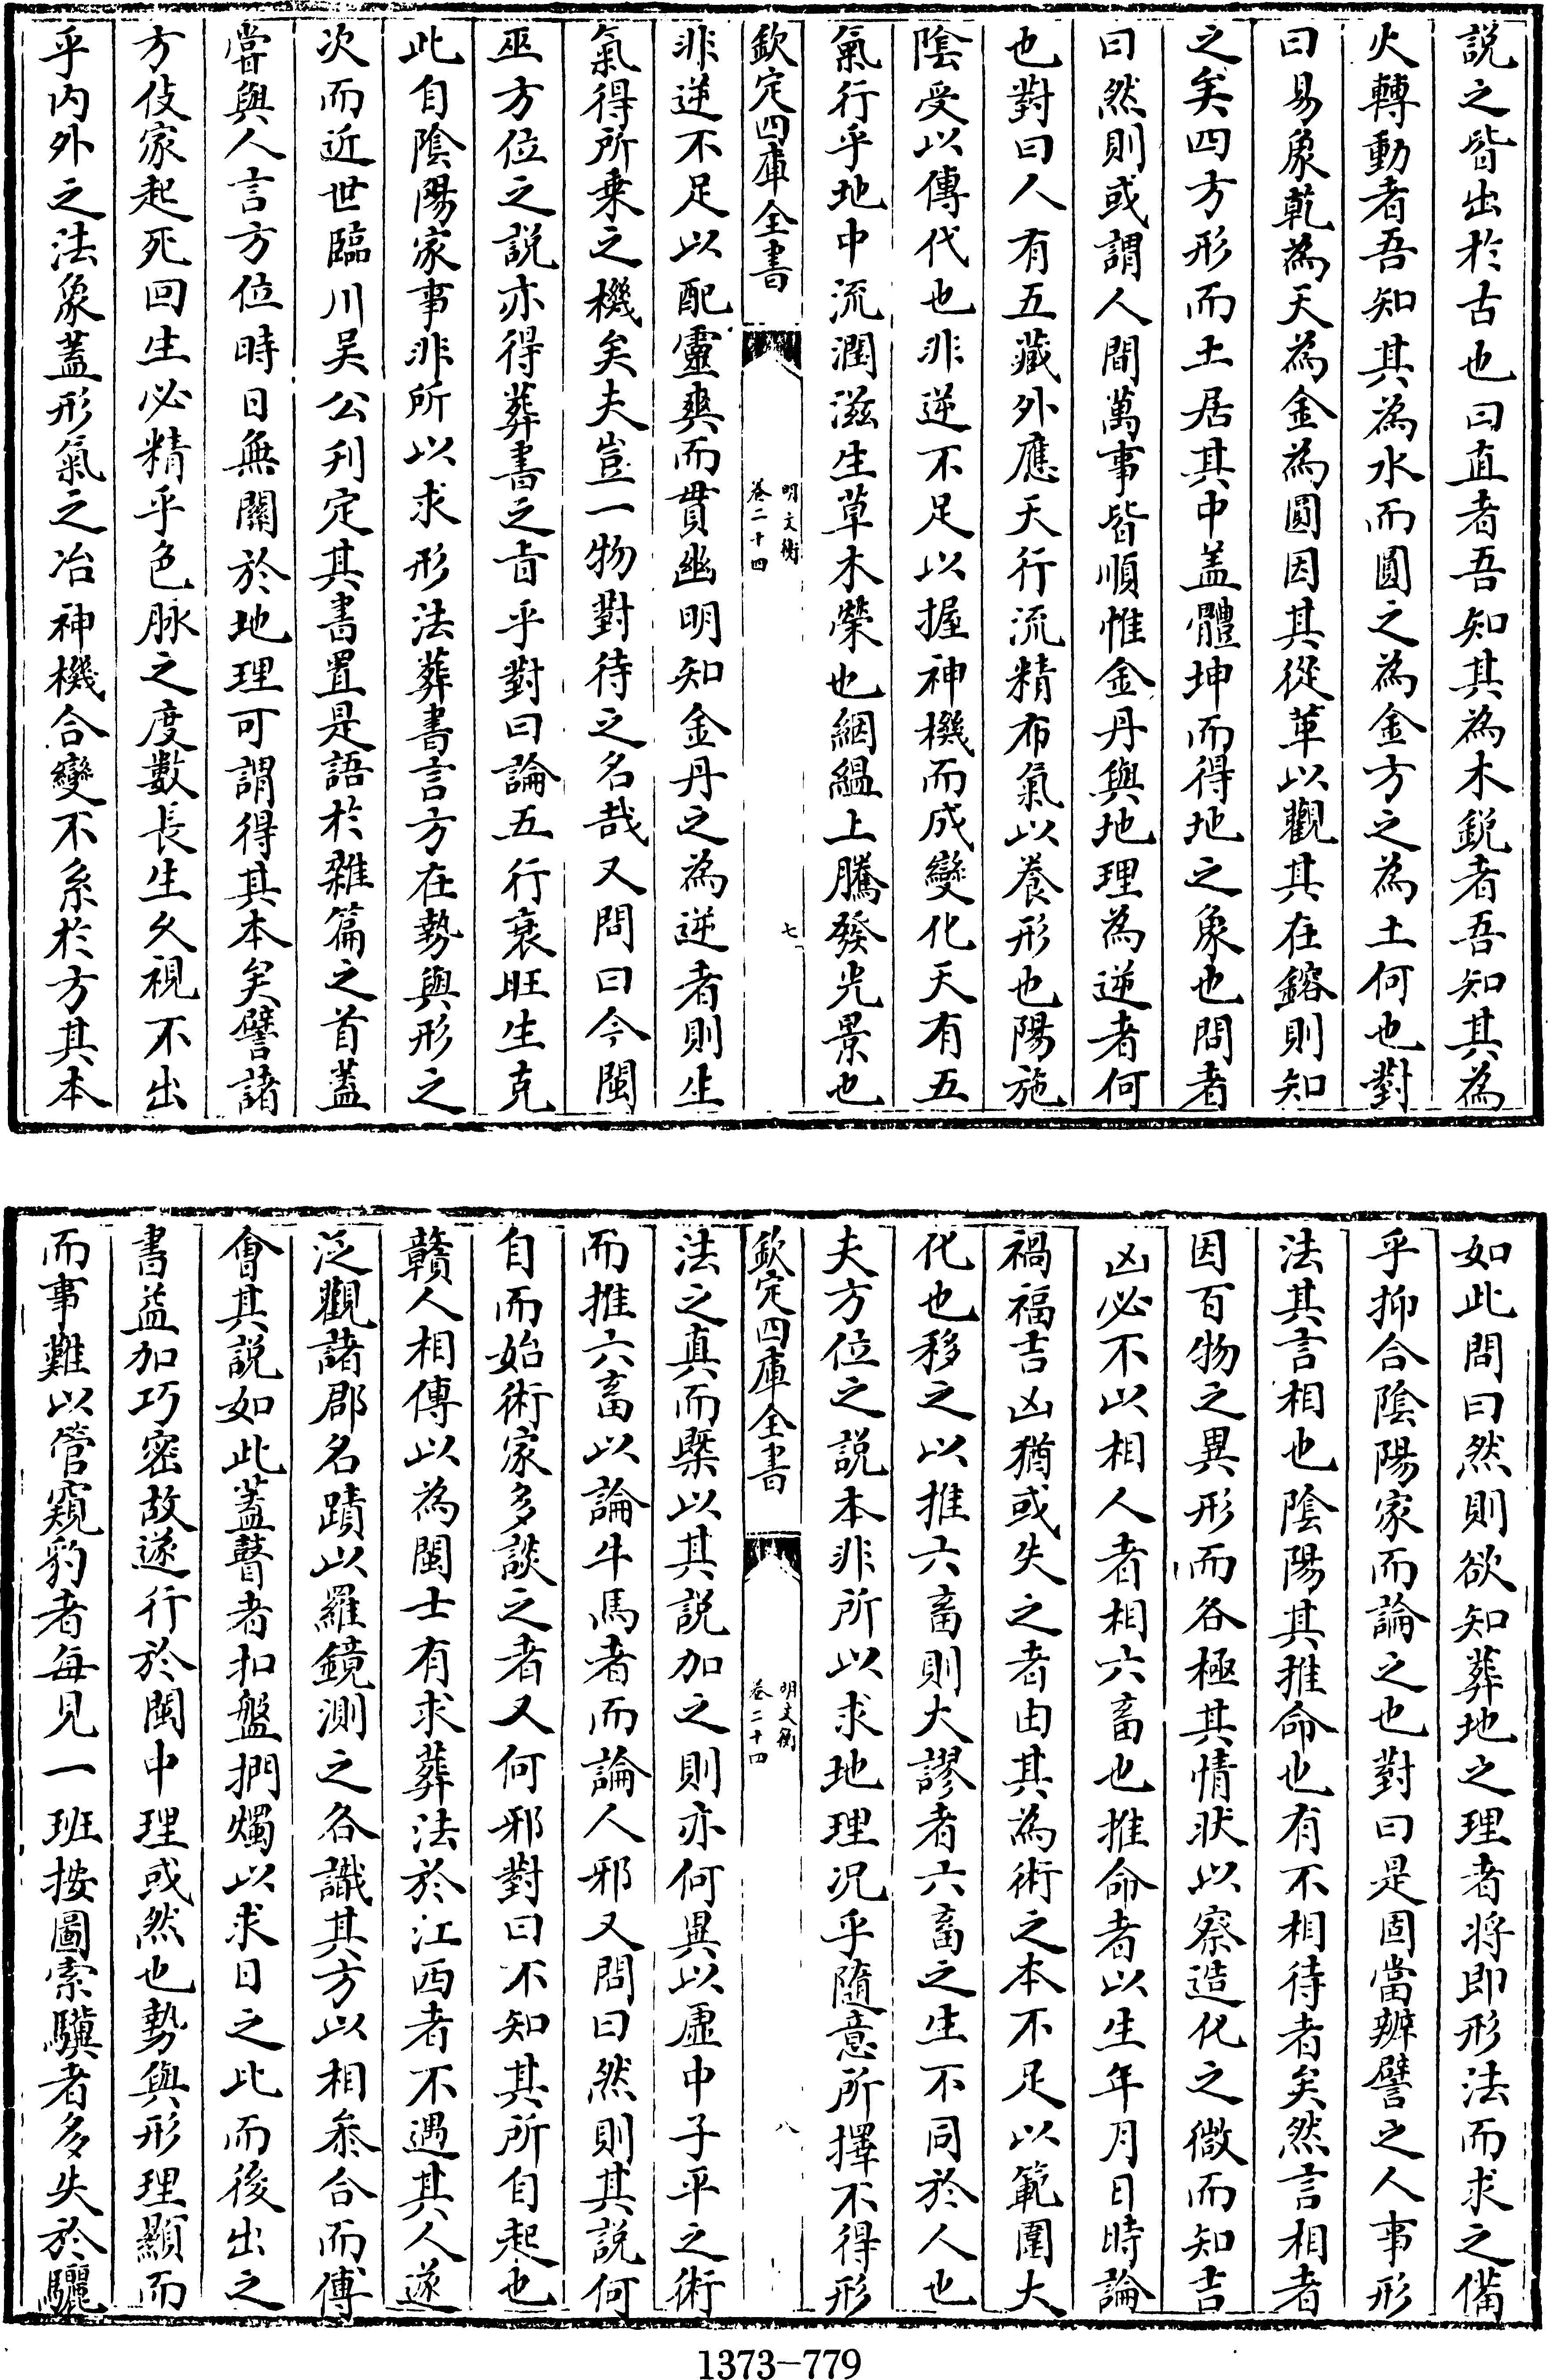 説之皆出於古也曰直者吾知其為木鋭者吾知其為
火轉動者吾知其為水而圓之為金方之為土何也對
曰易象乾為天為金為圓因其從革以觀其在鎔則知
之矣四方形而土居其中盖體坤而得地之象也問者
曰然則或謂人間萬事皆順惟金丹與地理為逆者何
也對曰人有五藏外應天行流精布氣以養形也陽施
陰受以傳代也非逆不足以握神機而成變化天有五
氣行乎地中流潤滋生草木榮也絪緼上騰發光景也
欽定四庫全書
明文衡
卷二十四
七
非逆不足以配靈爽而貫幽明知金丹之為逆者則生
氣得所乗之機矣夫豈一物對待之名哉又問曰今閩
巫方位之説亦得葬書之旨乎對曰論五行衰旺生克
此自陰陽家事非所以求形法葬書言方在勢與形之
次而近世臨川吴公刋定其書置是語於雜篇之首蓋
嘗與人言方位時日無關於地理可謂得其本矣譬諸
方伎家起死回生必精乎色脉之度數長生久視不出
乎内外之法象蓋形氣之冶神機合變不系於方其本
如此問曰然則欲知葬地之理者將即形法而求之備
乎抑合陰陽家而論之也對曰是固當辨譬之人事形
法其言相也陰陽其推命也有不相待者矣然言相者
因百物之異形而各極其情狀以察造化之微而知吉
凶必不以相人者相六畜也推命者以生年月日時論
禍福吉凶猶或失之者由其為術之本不足以範圍大
化也移之以推六畜則大謬者六畜之生不同於人也
夫方位之説本非所以求地理况乎隨意所擇不得形
欽定四庫全書
明文衡
卷二十四
八
法之真而槩以其説加之則亦何異以虚中子平之術
而推六畜以論牛馬者而論人邪又問曰然則其説何
自而始術家多談之者又何邪對曰不知其所自起也
贛人相傳以為閩士有求葬法於江西者不遇其人遂
泛觀諸郡名蹟以羅鏡測之各識其方以相參合而傅
會其説如此蓋瞽者扣盤捫燭以求日之此而後出之
書益加巧密故遂行於閩中理或然也勢與形理顯而
而事難以管窺豹者每見一班按圖索驥者多失於驪
1373-779